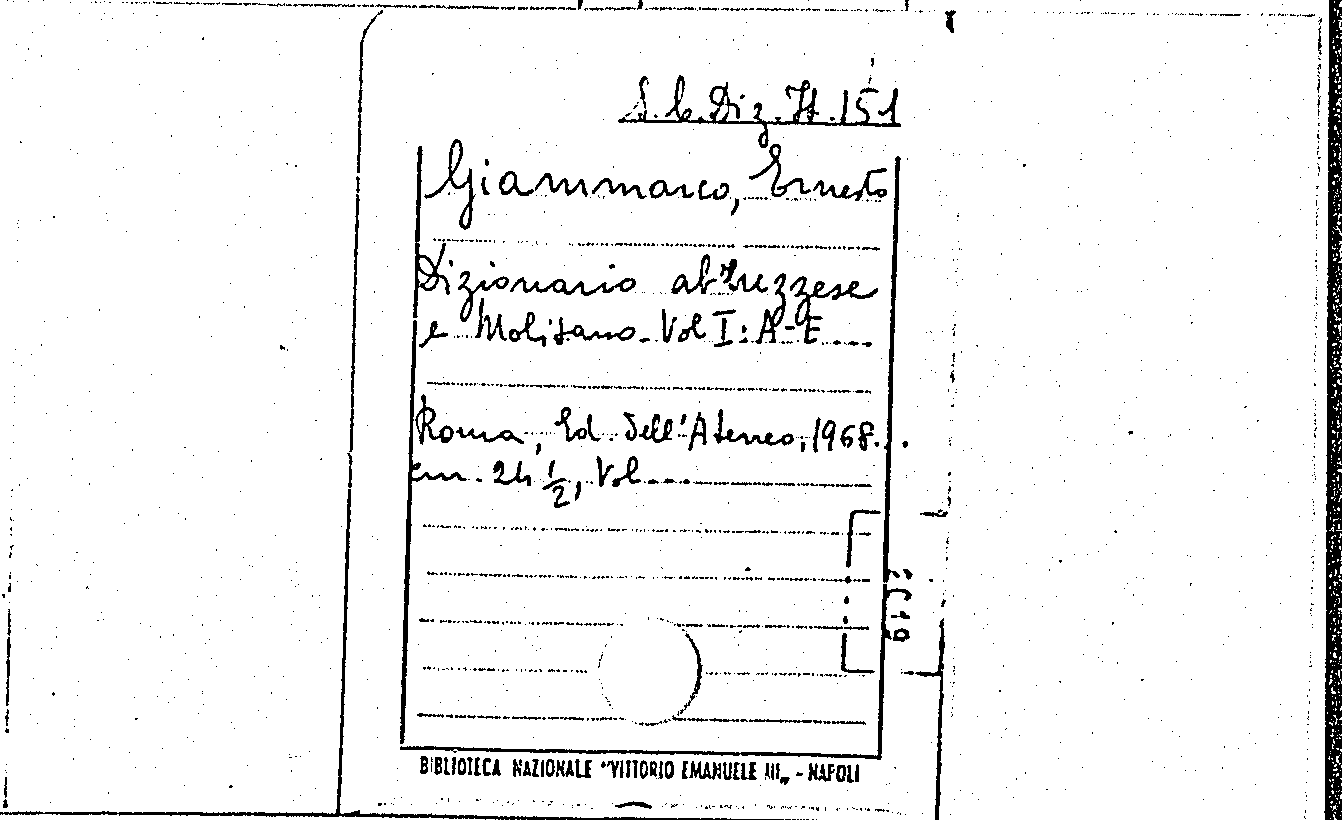 S. b. Diz. It. 151
Giammarco, Ernesto
Dizionario abruzzese
e Molisano. Vol I: A-E....
Roma, Ed. dell'Ateneo, 1968...
cm. 24 1/2, Vol...
BIBLIOTECA NAZIONALE "VITTORIO EMANUELE III„ - NAPOLI